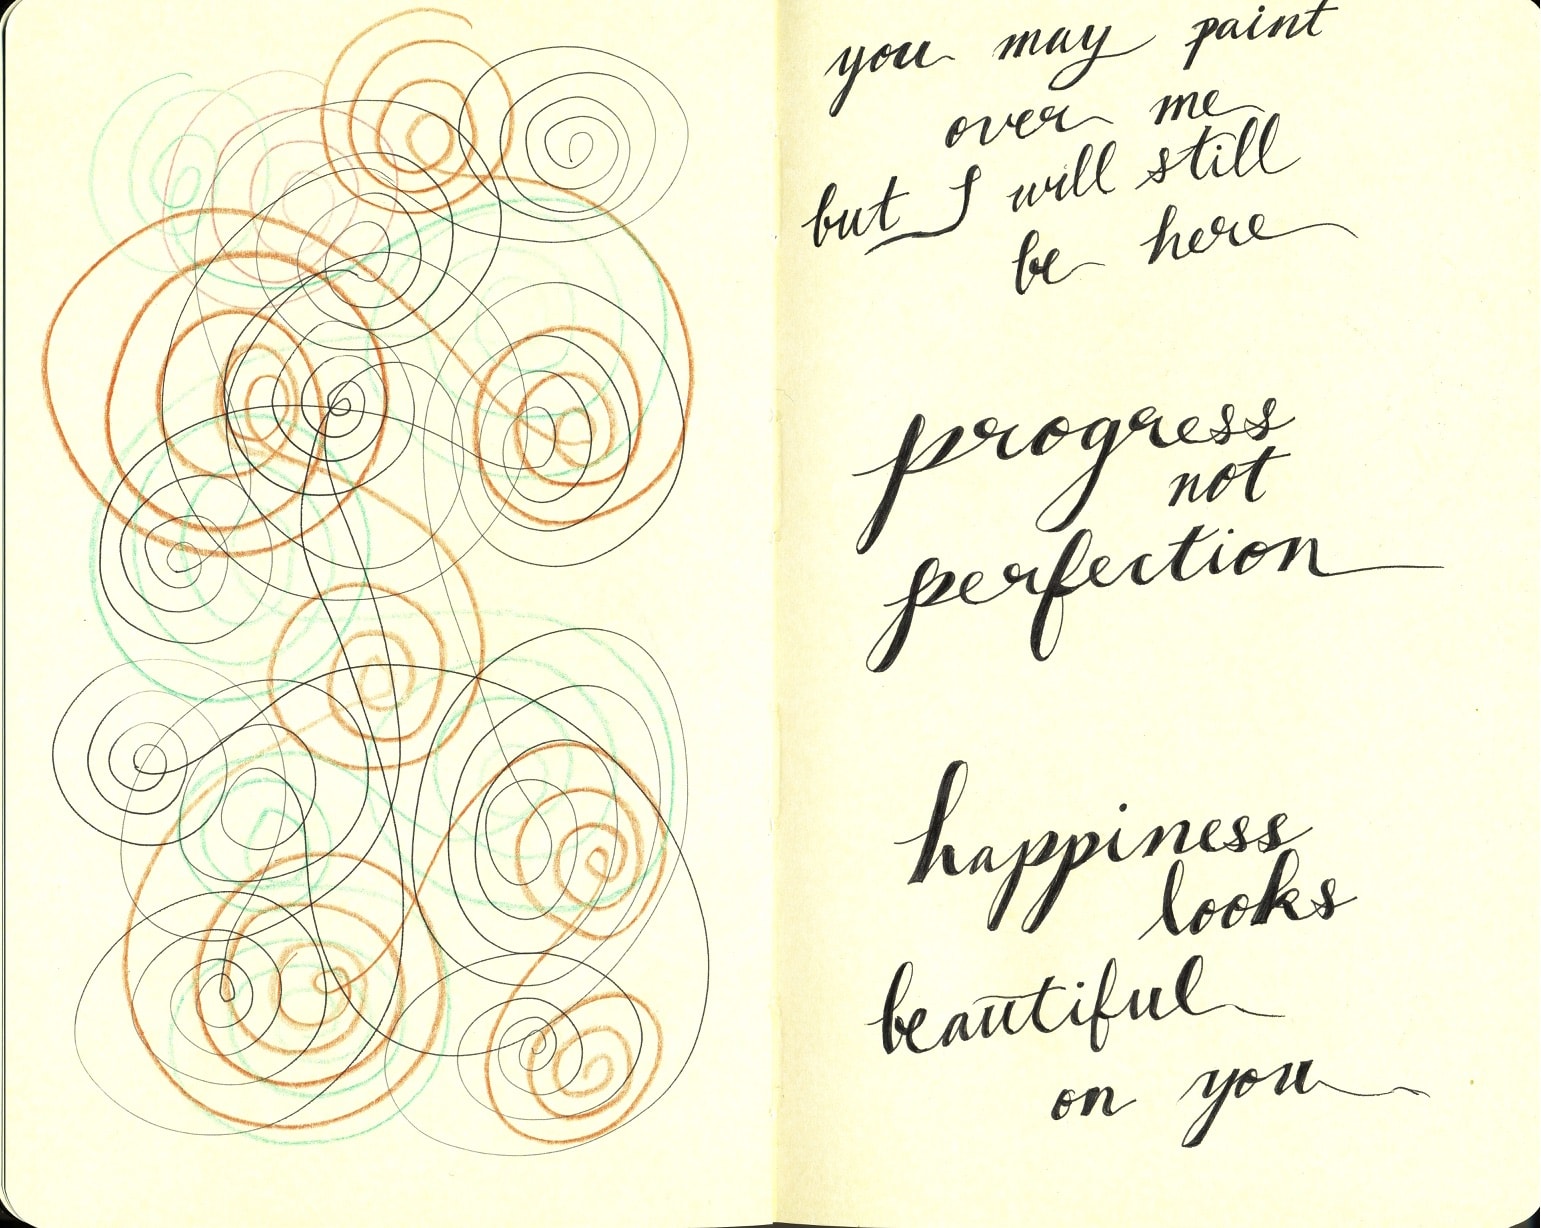 you may paint
over me
but I will still
be here
progress
not
perfection
happiness
looks
beautiful
on you